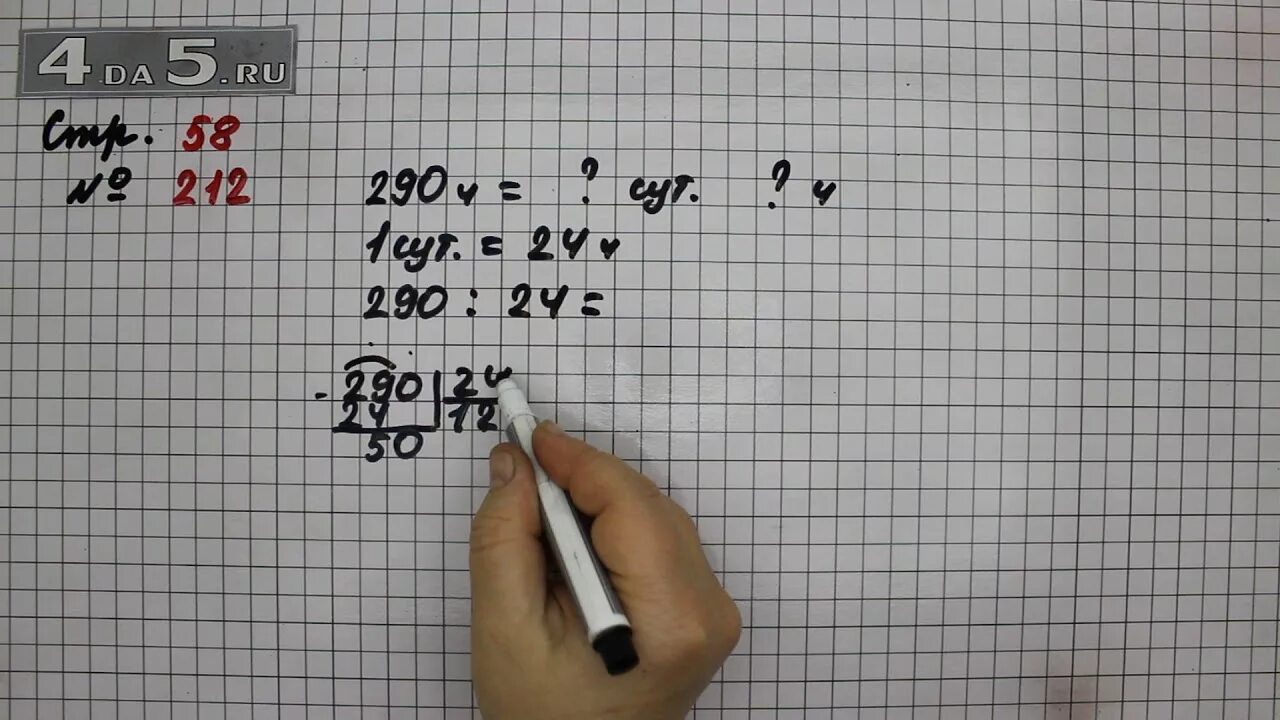 4DA5.RU
Стр. 58
№ 212
290 ч = ? сут. ? ч
1 сут. = 24 ч
290 : 24 =
- 290 | 24
24 | 12
50